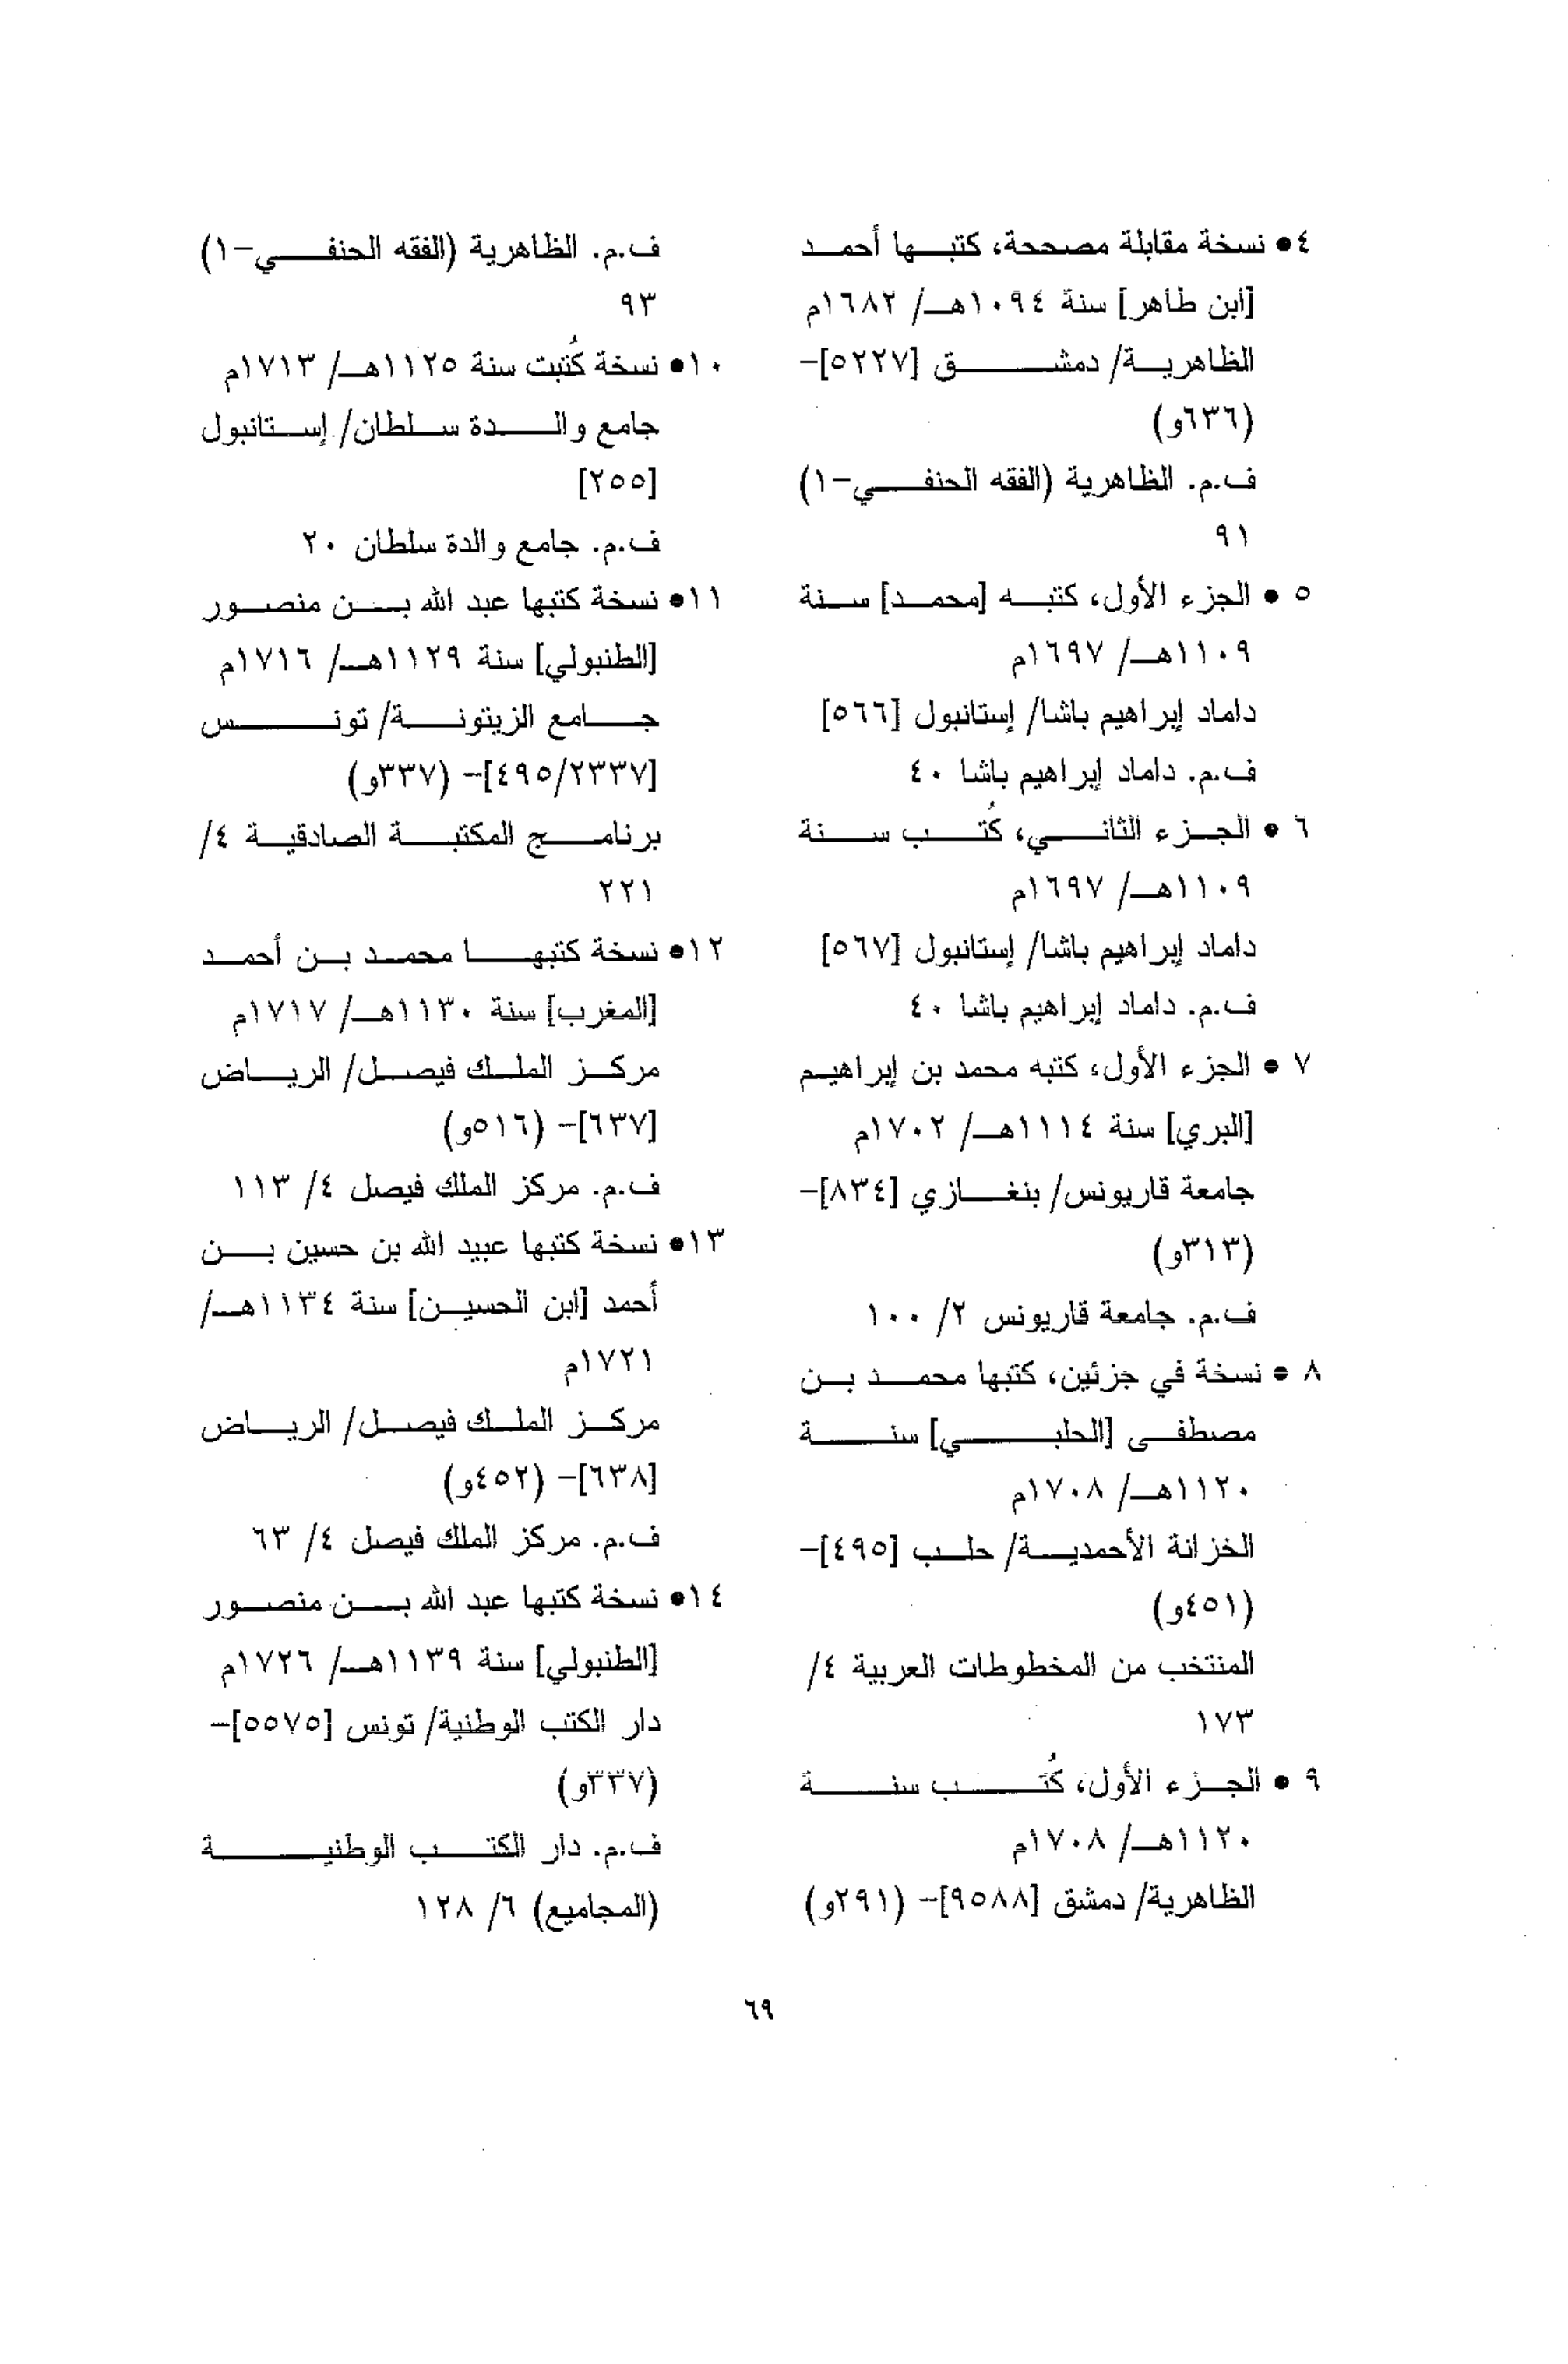 ٤ • نسخة مقابلة مصححة، كتبها أحمد
[ابن طاهر] سنة ١٠٩٤هـ/ ١٦٨٢م
الظاهرية/ دمشق [٥٢٢٧]-
(٦٣٦و)
ف.م. الظاهرية (الفقه الحنفي-١)
٩١
٥ • الجزء الأول، كتبه [محمد] سنة
١١٠٩هـ/ ١٦٩٧م
داماد إبراهيم باشا/ إستانبول [٥٦٦]
ف.م. داماد إبراهيم باشا ٤٠
٦ • الجزء الثاني، كُتب سنة
١١٠٩هـ/ ١٦٩٧م
داماد إبراهيم باشا/ إستانبول [٥٦٧]
ف.م. داماد إبراهيم باشا ٤٠
٧ • الجزء الأول، كتبه محمد بن إبراهيم
[البري] سنة ١١١٤هـ/ ١٧٠٢م
جامعة قاريونس/ بنغازي [٨٣٤]-
(٣١٣و)
ف.م. جامعة قاريونس ٢/ ١٠٠
٨ • نسخة في جزئين، كتبها محمد بن
مصطفى [الحلبي] سنة
١١٢٠هـ/ ١٧٠٨م
الخزانة الأحمدية/ حلب [٤٩٥]-
(٤٥١و)
المنتخب من المخطوطات العربية ٤/
١٧٣
٩ • الجزء الأول، كُتب سنة
١١٢٠هـ/ ١٧٠٨م
الظاهرية/ دمشق [٩٥٨٨]- (٢٩١و)
ف.م. الظاهرية (الفقه الحنفي-١)
٩٣
١٠• نسخة كُتبت سنة ١١٢٥هـ/ ١٧١٣م
جامع والدة سلطان/ إستانبول
[٢٥٥]
ف.م. جامع والدة سلطان ٢٠
١١• نسخة كتبها عبد الله بن منصور
[الطنبولي] سنة ١١٢٩هـ/ ١٧١٦م
جامع الزيتونة/ تونس
[٤٩٥/٢٣٣٧]- (٣٣٧و)
برنامج المكتبة الصادقية ٤/
٢٢١
١٢• نسخة كتبها محمد بن أحمد
[المغرب] سنة ١١٣٠هـ/ ١٧١٧م
مركز الملك فيصل/ الرياض
[٦٣٧]- (٥١٦و)
ف.م. مركز الملك فيصل ٤/ ١١٣
١٣• نسخة كتبها عبيد الله بن حسين بن
أحمد [ابن الحسين] سنة ١١٣٤هـ/
١٧٢١م
مركز الملك فيصل/ الرياض
[٦٣٨]- (٤٥٢و)
ف.م. مركز الملك فيصل ٤/ ٦٣
١٤• نسخة كتبها عبد الله بن منصور
[الطنبولي] سنة ١١٣٩هـ/ ١٧٢٦م
دار الكتب الوطنية/ تونس [٥٥٧٥]-
(٣٣٧و)
ف.م. دار الكتب الوطنية
(المجاميع) ٦/ ١٢٨
٦٩